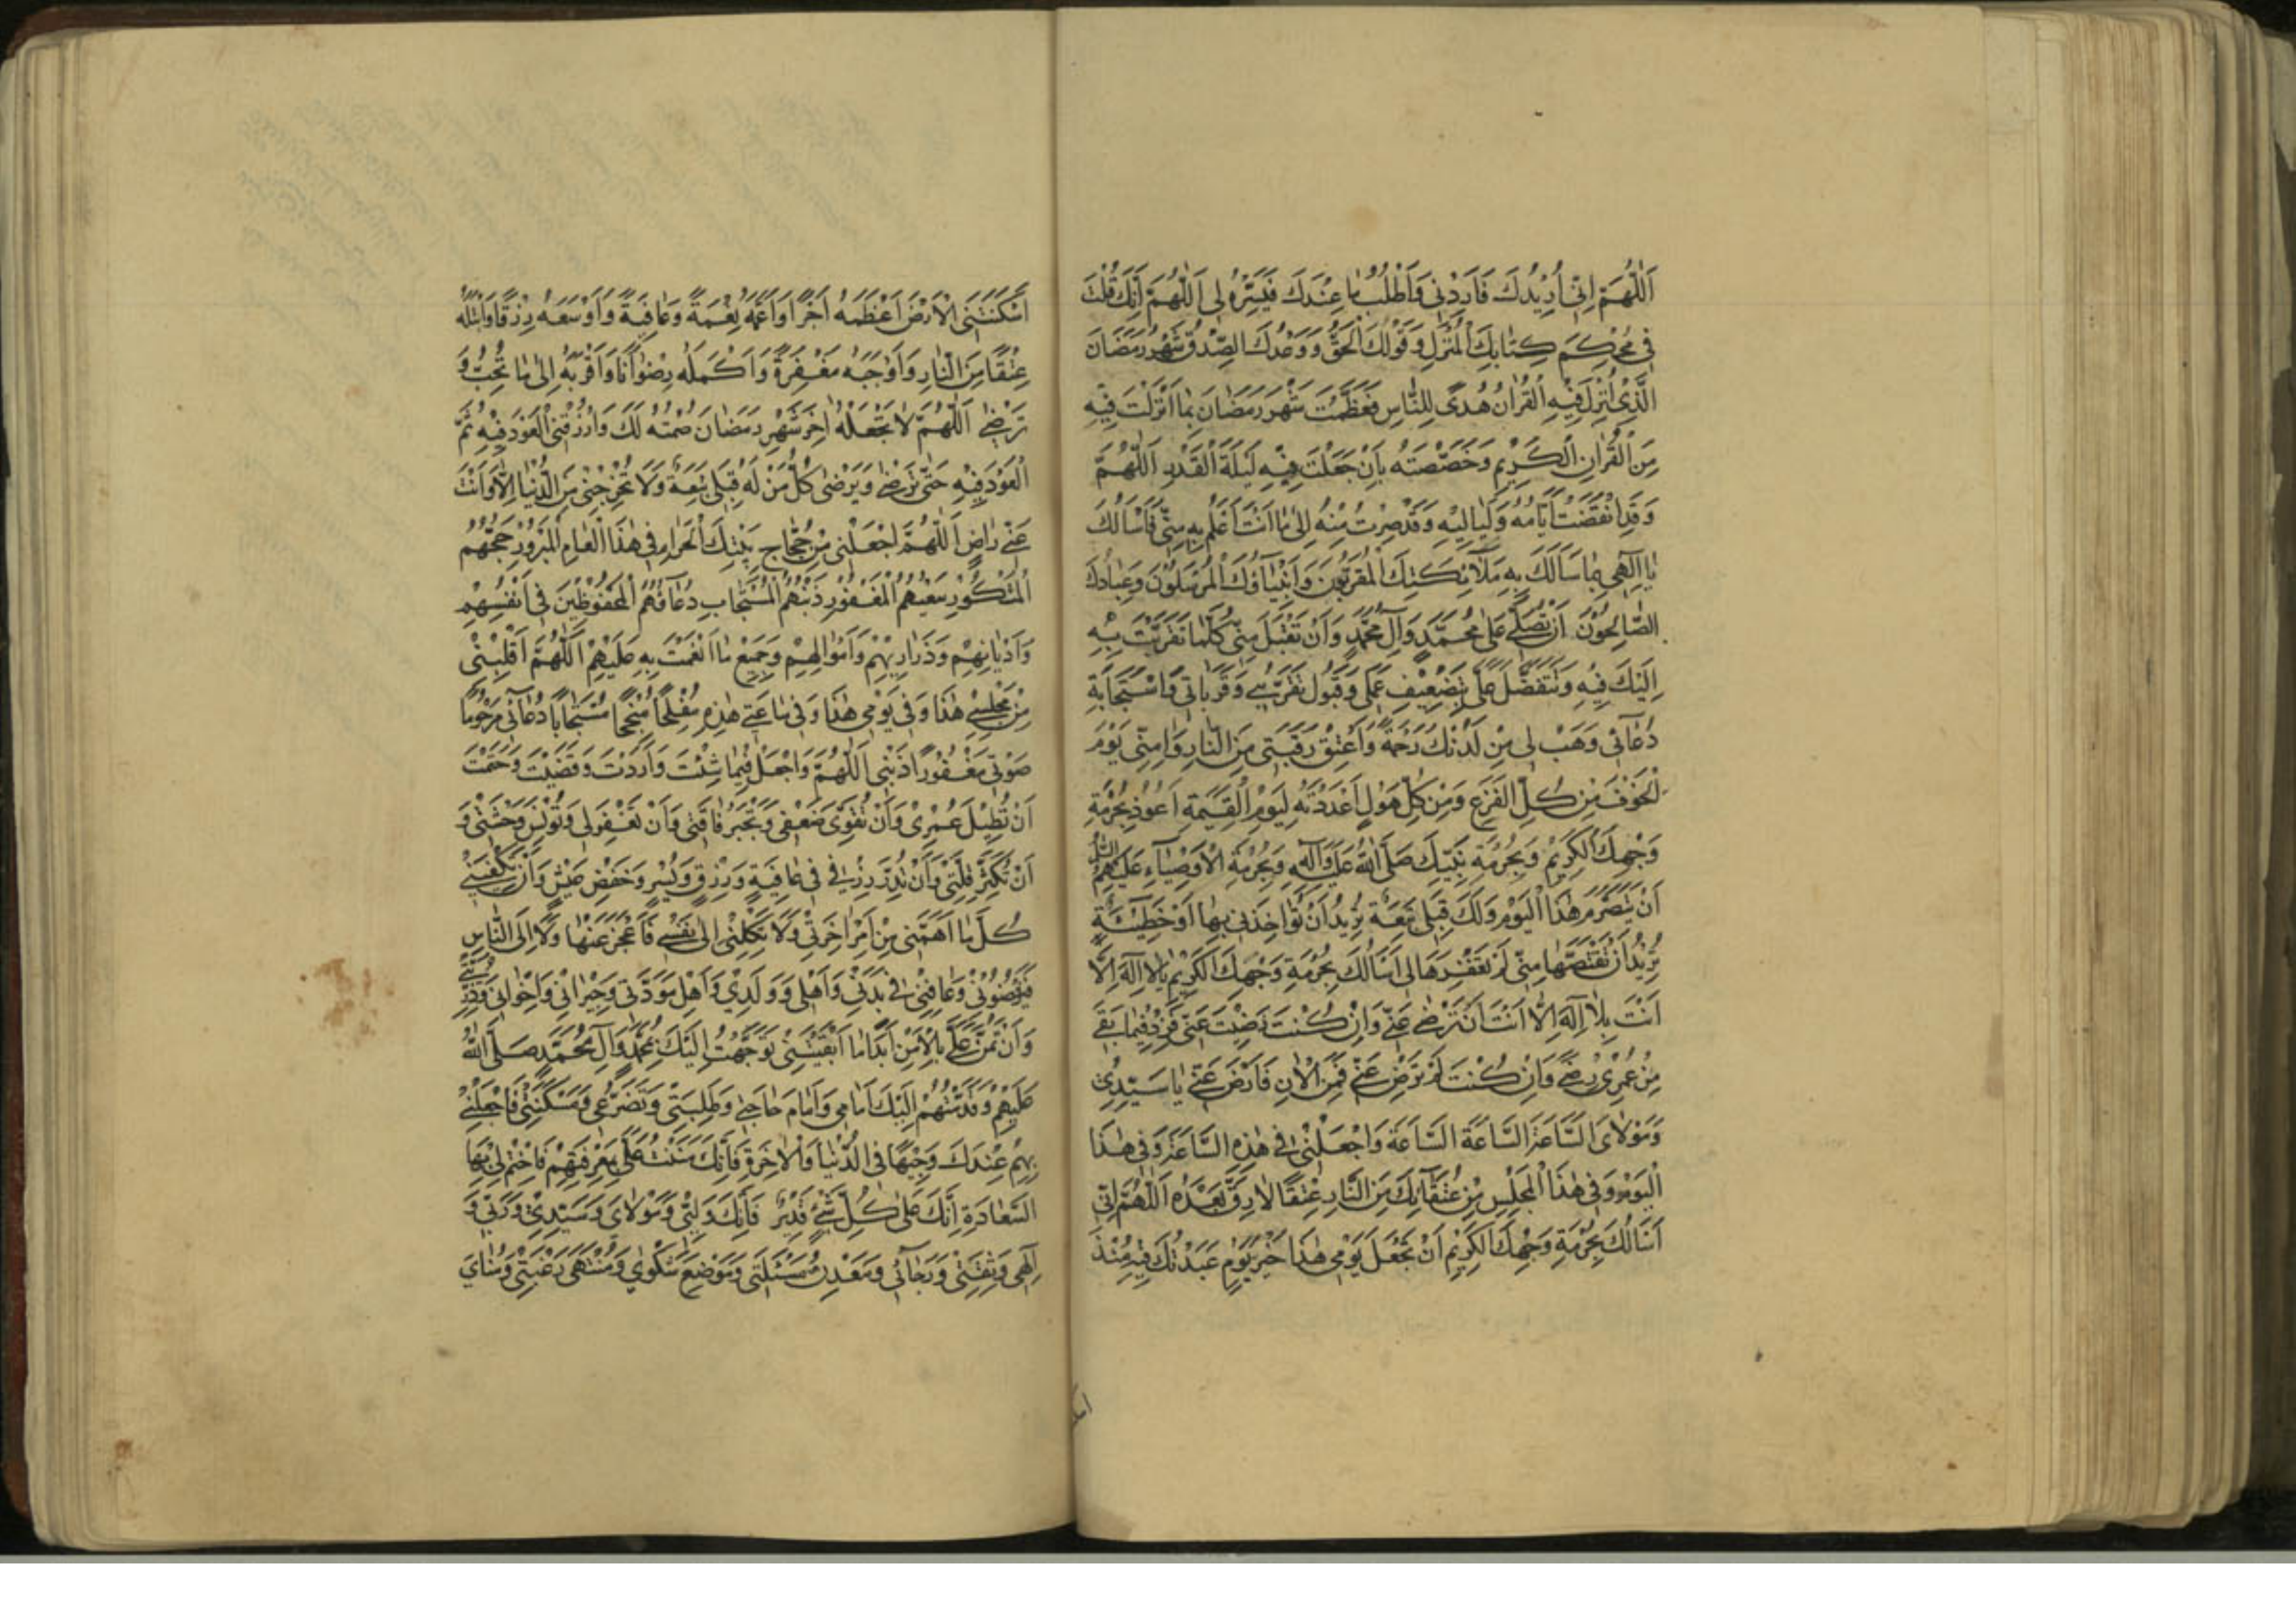 اَللّٰهُمَّ اِنّي اُرِيْدُكَ فَاَرِدْنِي وَاَطْلُبُ مَا عِنْدَكَ فَيَسِّرْهُ لِي اَللّٰهُمَّ اِنَّكَ قُلْتَ
فِي مُحْكَمِ كِتَابِكَ الْمُنْزَلِ وَقَوْلُكَ الْحَقُّ وَوَعْدُكَ الصِّدْقُ شَهْرُ رَمَضَانَ
الَّذِيْ اُنْزِلَ فِيْهِ الْقُرْاٰنُ هُدًى لِلنَّاسِ فَعَظَّمْتَ شَهْرَ رَمَضَانَ بِمَا اَنْزَلْتَ فِيْهِ
مِنَ الْقُرْاٰنِ الْكَرِيْمِ وَخَصَّصْتَهُ بِاَنْ جَعَلْتَ فِيْهِ لَيْلَةَ الْقَدْرِ اَللّٰهُمَّ
وَقَدِ انْقَضَتْ اَيَّامُهُ وَلَيَالِيْهِ وَقَدْ صِرْتُ مِنْهُ اِلٰى مَا اَنْتَ اَعْلَمُ بِهِ مِنّي فَاَسْاَلُكَ
يَا اِلٰهِي بِمَا سَاَلَكَ بِهِ مَلَآئِكَتُكَ الْمُقَرَّبُوْنَ وَاَنْبِيَآؤُكَ الْمُرْسَلُوْنَ وَعِبَادُكَ
الصَّالِحُوْنَ اَنْ تُصَلِّيَ عَلٰى مُحَمَّدٍ وَاٰلِ مُحَمَّدٍ وَاَنْ تَقْبَلَ مِنّي كُلَّمَا تَقَرَّبْتُ بِهِ
اِلَيْكَ فِيْهِ وَتَتَفَضَّلَ عَلَيَّ بِتَضْعِيْفِ عَمَلِي وَقَبُوْلِ تَقَرُّبِي وَقُرُبَاتِي وَاسْتِجَابَةِ
دُعَآئِي وَهَبْ لِي مِنْ لَدُنْكَ رَحْمَةً وَاَعْتِقْ رَقَبَتِي مِنَ النَّارِ وَاٰمِنّي يَوْمَ
الْخَوْفِ مِنْ كُلِّ الْفَزَعِ وَمِنْ كُلِّ هَوْلٍ اَعْدَدْتَهُ لِيَوْمِ الْقِيٰمَةِ اَعُوْذُ بِحُرْمَةِ
وَجْهِكَ الْكَرِيْمِ وَبِحُرْمَةِ نَبِيِّكَ صَلَّى اللهُ عَلَيْهِ وَاٰلِهِ وَبِحُرْمَةِ الْاَوْصِيَآءِ عَلَيْهِمُ السَّلَامُ
اَنْ يَتَصَرَّمَ هٰذَا الْيَوْمُ وَلَكَ قِبَلِي تَبِعَةٌ تُرِيْدُ اَنْ تُؤَاخِذَنِي بِهَا اَوْ خَطِيْئَةٌ
تُرِيْدُ اَنْ تَقْتَصَّهَا مِنّي لَمْ تَغْفِرْهَا لِي اَسْاَلُكَ بِحُرْمَةِ وَجْهِكَ الْكَرِيْمِ يَا لَا اِلٰهَ اِلَّا
اَنْتَ بِلَا اِلٰهَ اِلَّا اَنْتَ اَنْ تَرْضٰى عَنّي وَاِنْ كُنْتَ رَضِيْتَ عَنّي فَزِدْ فِيْمَا بَقِيَ
مِنْ عُمْرِيْ رِضًى وَاِنْ كُنْتَ لَمْ تَرْضَ عَنّي فَمِنَ الْاٰنَ فَارْضَ عَنّي يَا سَيِّدِيْ
وَمَوْلَايَ السَّاعَةَ السَّاعَةَ السَّاعَةَ وَاجْعَلْنِيْ فِي هٰذِهِ السَّاعَةِ وَفِي هٰذَا
الْيَوْمِ وَفِي هٰذَا الْمَجْلِسِ مِنْ عُتَقَآئِكَ مِنَ النَّارِ عِتْقًا لَا رِقَّ بَعْدَهُ اَللّٰهُمَّ اِنّي
اَسْاَلُكَ بِحُرْمَةِ وَجْهِكَ الْكَرِيْمِ اَنْ تَجْعَلَ يَوْمِي هٰذَا خَيْرَ يَوْمٍ عَبَدْتُكَ فِيْهِ مُنْذُ
اَسْكَنْتَنِي الْاَرْضَ اَعْظَمَهُ اَجْرًا وَاَعَمَّهُ نِعْمَةً وَعَافِيَةً وَاَوْسَعَهُ رِزْقًا وَاَبْتَلَهُ
عِتْقًا مِنَ النَّارِ وَاَوْجَبَهُ مَغْفِرَةً وَاَكْمَلَهُ رِضْوَانًا وَاَقْرَبَهُ اِلٰى مَا تُحِبُّ وَ
تَرْضٰى اَللّٰهُمَّ لَا تَجْعَلْهُ اٰخِرَ شَهْرِ رَمَضَانَ صُمْتُهُ لَكَ وَارْزُقْنِي الْعَوْدَ فِيْهِ ثُمَّ
الْعَوْدَ فِيْهِ حَتّٰى تَرْضٰى وَيَرْضٰى كُلُّ مَنْ لَهُ قِبَلِي تَبِعَةٌ وَلَا تُخْرِجْنِي مِنَ الدُّنْيَا اِلَّا وَاَنْتَ
عَنّي رَاضٍ اَللّٰهُمَّ اجْعَلْنِي مِنْ حُجَّاجِ بَيْتِكَ الْحَرَامِ فِي هٰذَا الْعَامِ الْمَبْرُوْرِ حَجُّهُمُ
الْمَشْكُوْرِ سَعْيُهُمُ الْمَغْفُوْرِ ذَنْبُهُمُ الْمُسْتَجَابِ دُعَآؤُهُمُ الْمَحْفُوْظِيْنَ فِي اَنْفُسِهِمْ
وَاَدْيَانِهِمْ وَذَرَارِيْهِمْ وَاَمْوَالِهِمْ وَجَمِيْعِ مَا اَنْعَمْتَ بِهِ عَلَيْهِمْ اَللّٰهُمَّ اَقْلِبْنِي
مِنْ مَجْلِسِي هٰذَا وَفِي يَوْمِي هٰذَا وَفِي سَاعَتِي هٰذِهِ مُفْلِحًا مُنْجِحًا مُسْتَجَابًا دُعَآئِي مَرْحُوْمًا
صَوْتِي مَغْفُوْرًا ذَنْبِي اَللّٰهُمَّ وَاجْعَلْ فِيْمَا شِئْتَ وَاَرَدْتَ وَقَضَيْتَ وَحَتَمْتَ
اَنْ تُطِيْلَ عُمْرِيْ وَاَنْ تُقَوِّيَ ضَعْفِي وَتَجْبُرَ فَاقَتِي وَاَنْ تَغْفِرَ لِي وَتُؤْنِسَ وَحْشَتِي وَ
اَنْ تُكَثِّرَ قِلَّتِي وَاَنْ تُدِرَّ رِزْقِي فِي عَافِيَةٍ وَرِزْقٍ وَيُسْرٍ وَخَفْضِ عَيْشٍ وَاَنْ تَكْفِيَنِي
كُلَّ مَا اَهَمَّنِي مِنْ اَمْرِ اٰخِرَتِي وَلَا تَكِلْنِي اِلٰى نَفْسِي فَاَعْجَزَ عَنْهَا وَلَا اِلَى النَّاسِ
فَيَرْفُضُوْنِي وَعَافِنِي فِي بَدَنِي وَاَهْلِي وَوَلَدِيْ وَاَهْلِ مَوَدَّتِي وَجِيْرَانِي وَاِخْوَانِي وَذُرِّيَّتِي
وَاَنْ تَمُنَّ عَلَيَّ بِالْاَمْنِ اَبَدًا مَا اَبْقَيْتَنِي تَوَجَّهْتُ اِلَيْكَ بِمُحَمَّدٍ وَاٰلِ مُحَمَّدٍ صَلَّى اللهُ
عَلَيْهِمْ وَقَدَّمْتُهُمْ اِلَيْكَ اَمَامِي وَاَمَامَ حَاجَتِي وَطَلِبَتِي وَتَضَرُّعِي وَمَسْكَنَتِي فَاجْعَلْنِي
بِهِمْ عِنْدَكَ وَجِيْهًا فِي الدُّنْيَا وَالْاٰخِرَةِ فَاِنَّكَ مَنَنْتَ عَلَيَّ بِمَعْرِفَتِهِمْ فَاخْتِمْ لِي بِهَا
السَّعَادَةِ اِنَّكَ عَلٰى كُلِّ شَيْءٍ قَدِيْرٌ فَاِنَّكَ وَلِيّي وَمَوْلَايَ وَسَيِّدِيْ وَرَبّي وَ
اِلٰهِي وَثِقَتِي وَرَجَآئِي وَمَعْدِنُ مَسْئَلَتِي وَمَوْضِعُ شَكْوَايَ وَمُنْتَهٰى رَغْبَتِي وَمُنَايَ